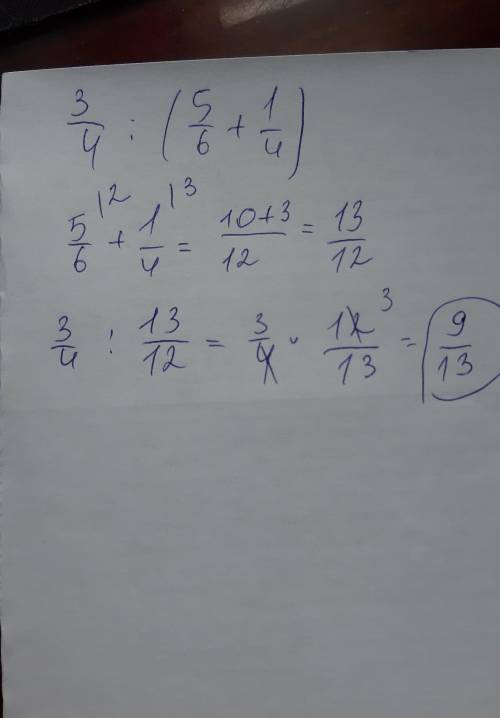 3/4 : (5/6 + 1/4)
5/6 |2 + 1/4 |3 = 10+3/12 = 13/12
3/4 : 13/12 = 3/4 · 12 3/13 = 9/13